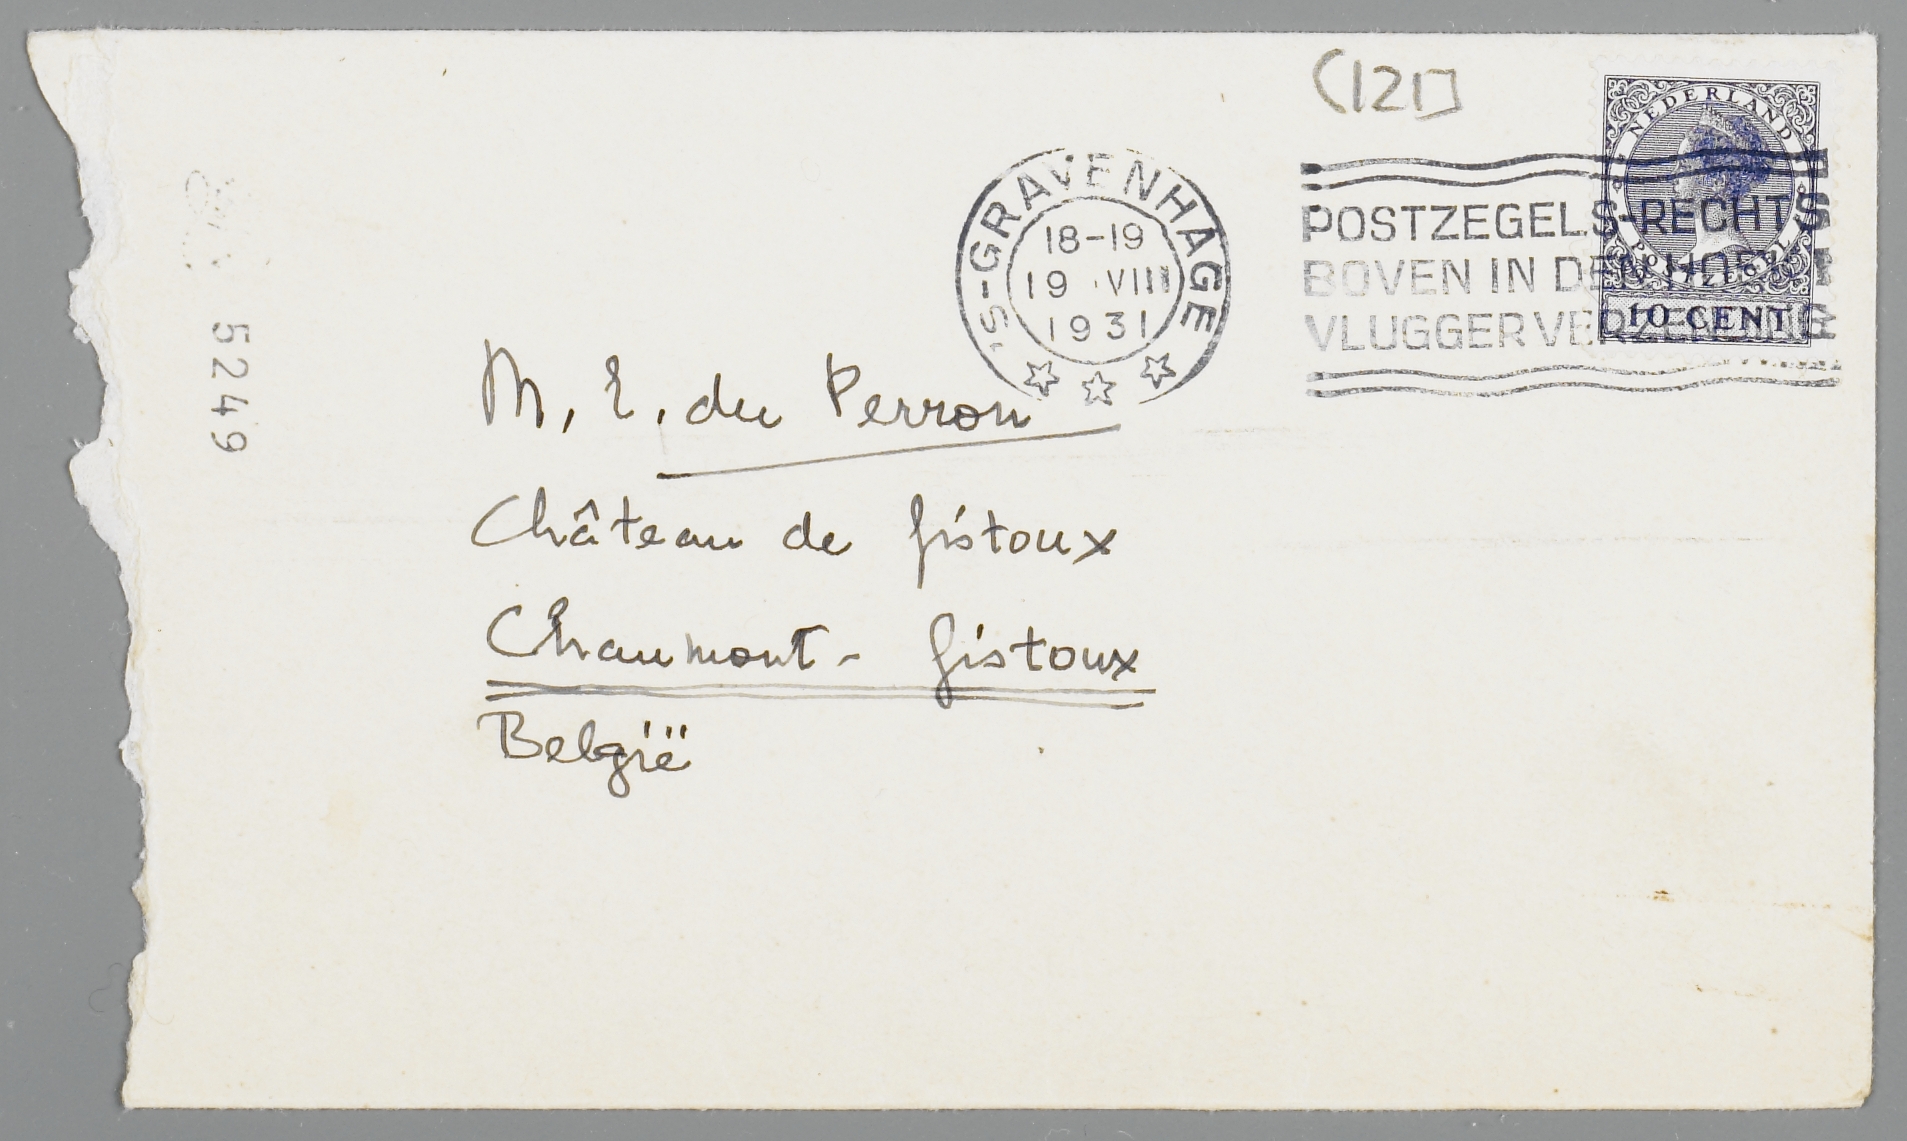 (121]
NEDERLAND
POSTZEGEL
10 CENT
'S-GRAVENHAGE
18-19
19 VIII
1931
POSTZEGELS RECHTS
BOVEN IN DEN HOEK
VLUGGER VERZENDING
5249
M. E. du Perron
Château de Gistoux
Chaumont - Gistoux
België